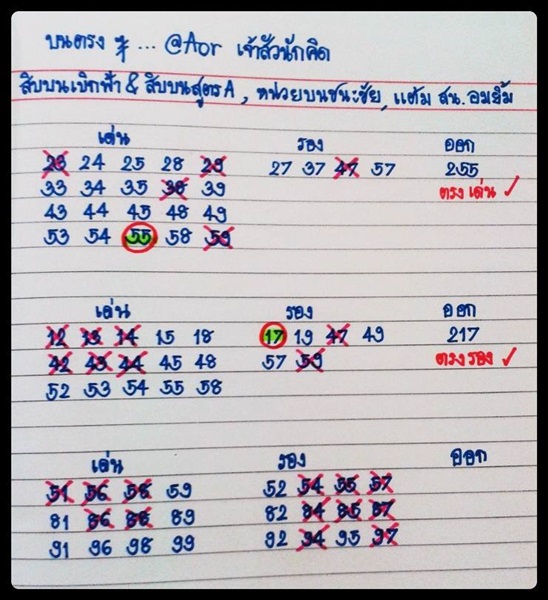 บนตรง ... @Aor เจ้าสัวนักคิด
สิบบนเบิกฟ้า & สิบบนสูตร A, หน่วยบนชนะชัย, แต้ม สน. อมยิ้ม
เด่น รอง ออก
23 24 25 28 29 27 37 47 57 255
33 34 35 38 39 ตรงเด่น ✓
43 44 45 48 49
53 54 55 58 59
เด่น รอง ออก
12 13 14 15 18 17 19 47 49 217
42 43 44 45 48 57 59 ตรงรอง ✓
52 53 54 55 58
เด่น รอง ออก
51 56 58 59 52 54 55 57
81 86 88 89 82 84 85 87
91 96 98 99 92 94 95 97